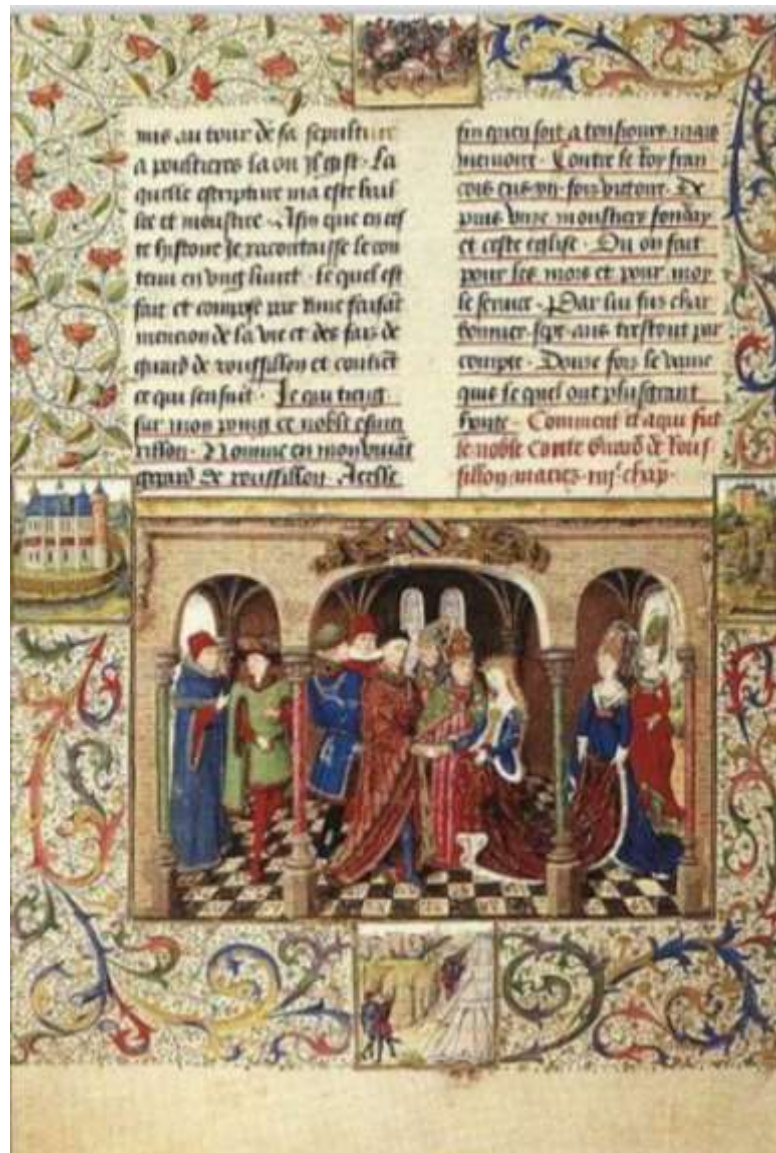 mis au tour de sa sepulture
a poultieres la ou il gist. La
quelle escripture ma este bail
lee et moustree. Afin que en ces
te histoire je racontaisse le con
tenu en ung livret. lequel est
fait et compose par rime faisāt
mencion de la vie et des fais de
guard de roussillon et contiēt
ce qui sensuit. Je qui tieng
sur mon poing ce noble esmei
rillon. Nomme en mon vivāt
gerard de roussillon. Acelle
fin quen soit a tousiours mais
memoire. Contre le roy fran
cois eus
fois victoire. De
puis unze moustiers fonday
et ceste eglise. Ou on fait
pour les mors et pour moy
le service. Par lui fus char
bonnier sept ans trestout par
compte. Douse fois le vainc
quis le quel ont plusgrant
honte. Comment et a qui fut
le noble Conte Guard de Rous
sillon mariez. iiije chap.